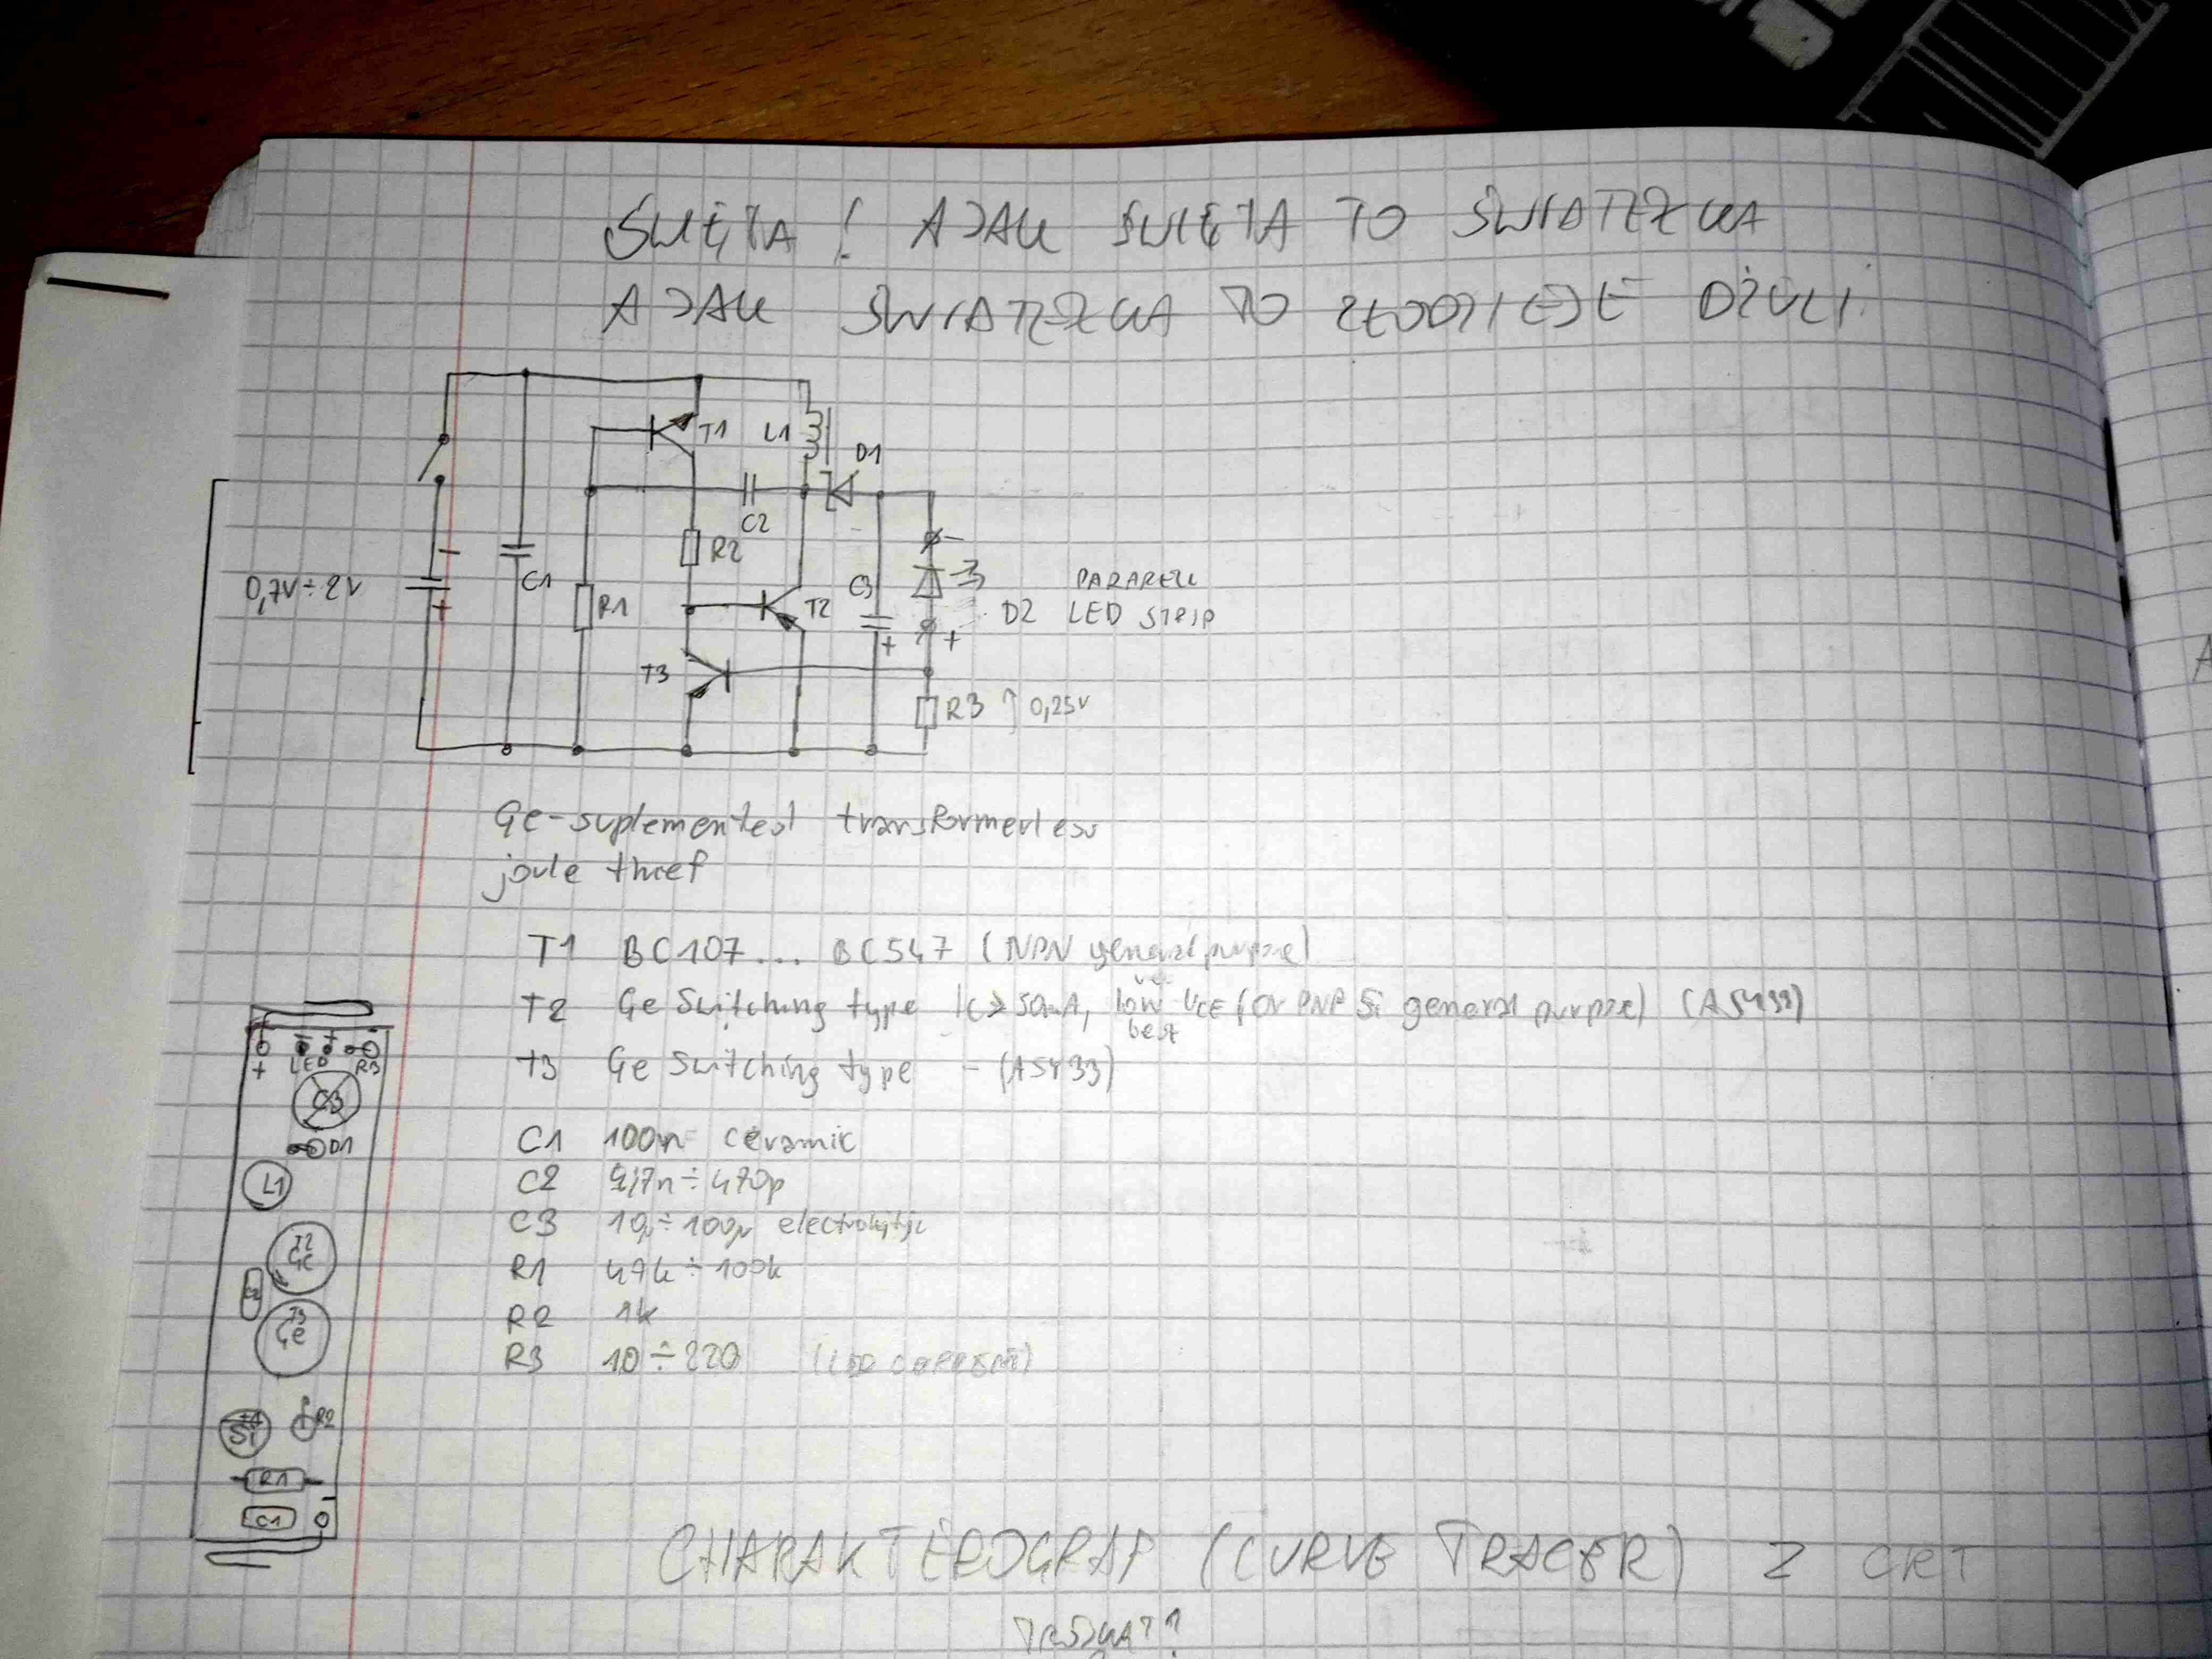 ŚWIĘTA! A JAK ŚWIĘTA TO ŚWIATEŁKA
A JAK ŚWIATEŁKA TO ZŁODZIEJE DŻULI.
T1
L1
D1
C2
R2
0,7V÷2V
-
+
C1
R1
T2
C3
+
-
+
D2
PARAREL
LED STRIP
T3
R3 0,25V
Ge-suplemented transformerless
joule thief
T1 BC107... BC547 (NPN general purpose)
T2 Ge Switching type Ic≥50mA, low UCE (or PNP Si general purpose) (ASY33)
best
T3 Ge Switching type - (ASY33)
C1 100n ceramic
C2 4,7n÷470p
C3 10µ÷100µ electrolytic
R1 47k÷100k
R2 1k
R3 10÷220 (LED CURRENT)
+ LED R3
- +
C3
D1
L1
T2
Ge
C2
T3
Ge
T1
Si
R2
R1
C1
-
CHARAKTEROGRAF (CURVE TRACER) Z CRT